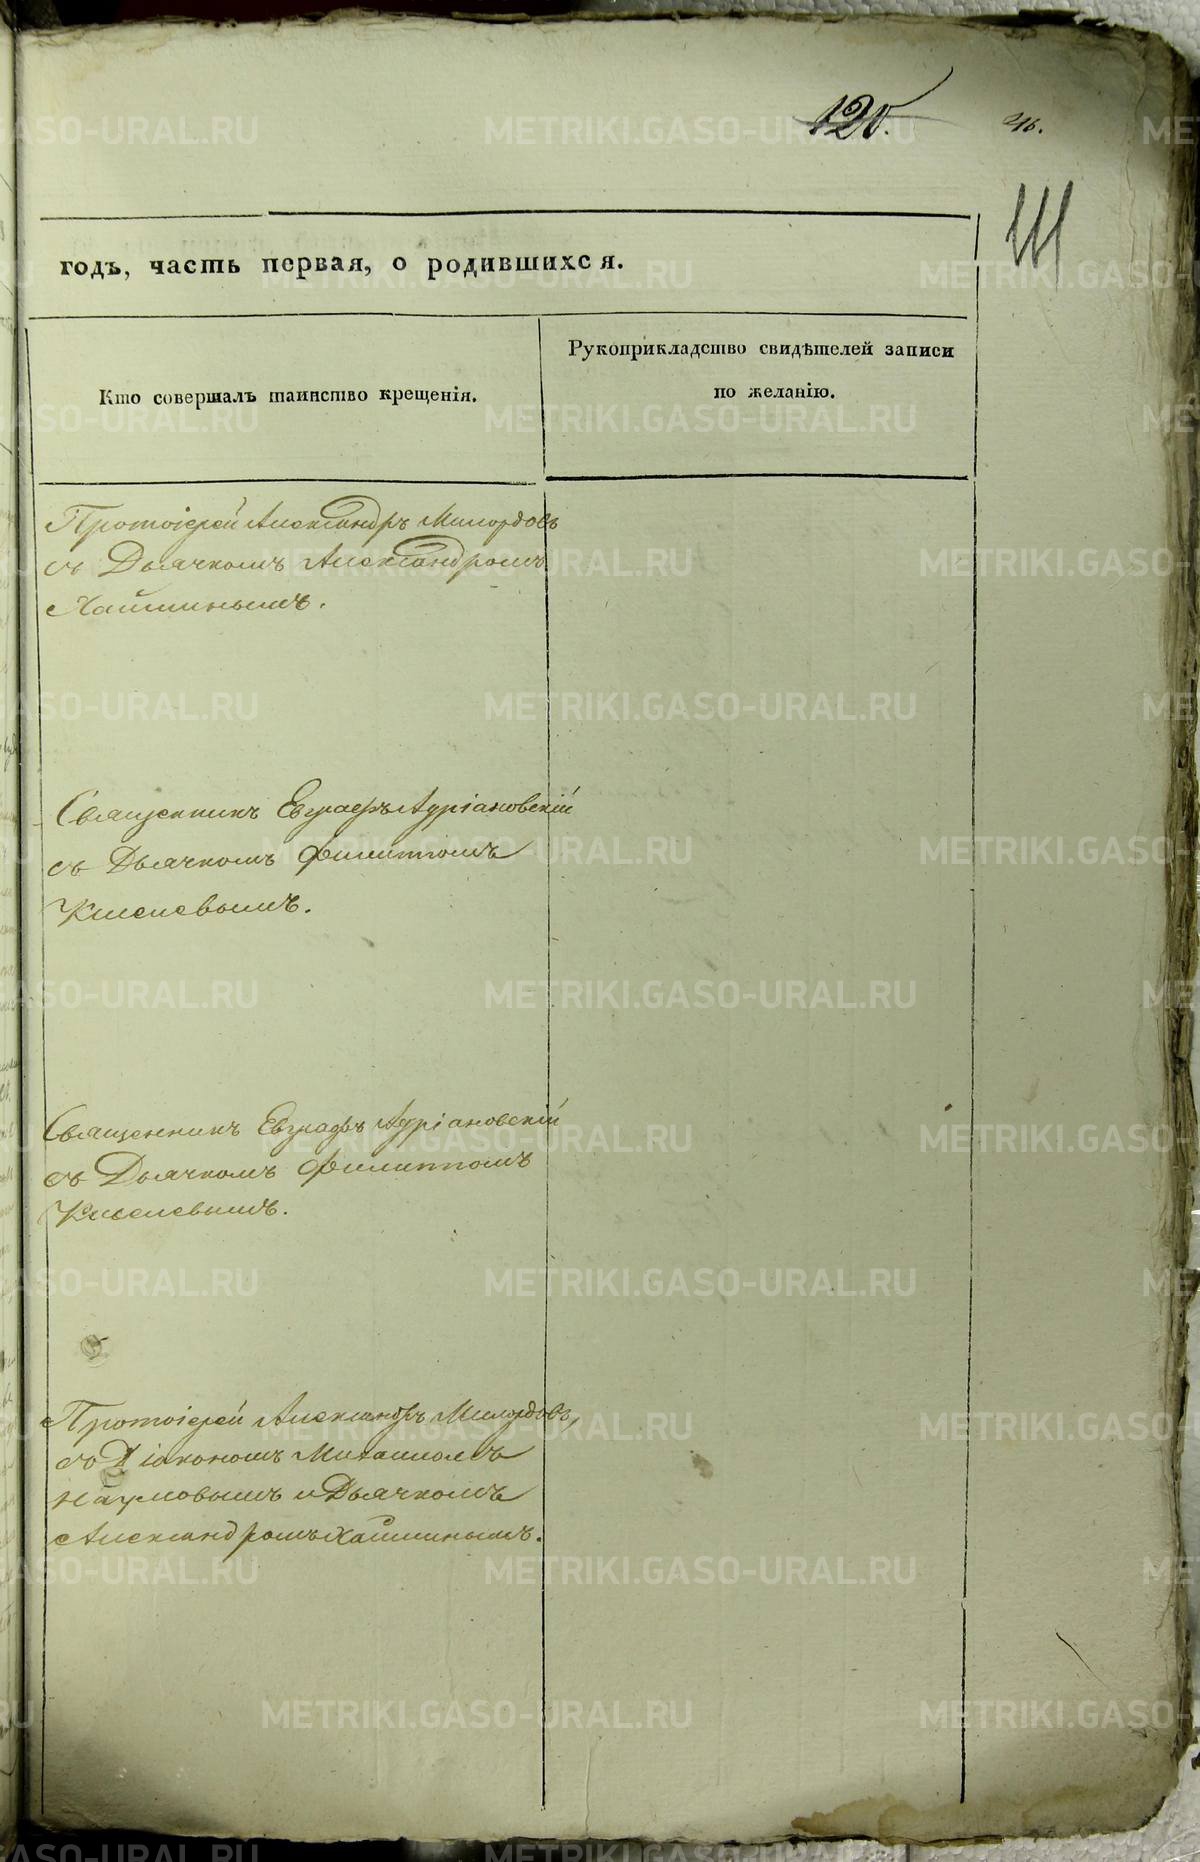 120.
46.
111
годъ, часть первая, о родившихся.
Кто совершалъ таинство крещенія.
Рукоприкладство свидѣтелей записи
по желанію.
Протоіерей Александръ Милордовъ
съ Дьячкомъ Александромъ
Хайминымъ.
Священникъ Евграфъ Адріановскій
съ Дьячкомъ Филиппомъ
Киселевымъ.
Священникъ Евграфъ Адріановскій
съ Дьячкомъ Филиппомъ
Киселевымъ.
Протоіерей Александръ Милордовъ,
съ Діакономъ Михаиломъ
Наумовымъ и Дьячкомъ
Александромъ Хайминымъ.
METRIKI.GASO-URAL.RU